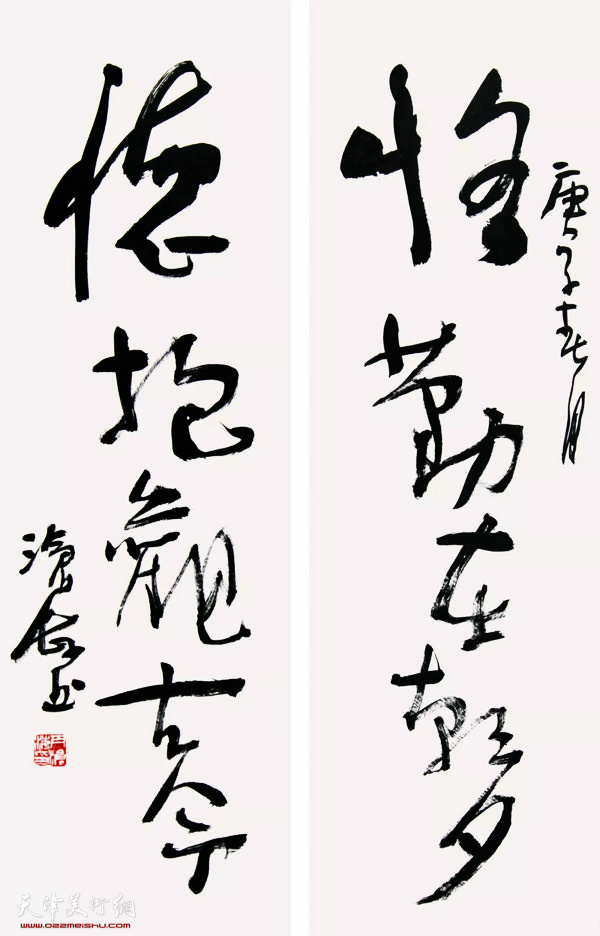 恪勤在朝夕
庚子春月
懷抱觀古今
滄海书
天津美術網
www.022meishu.com